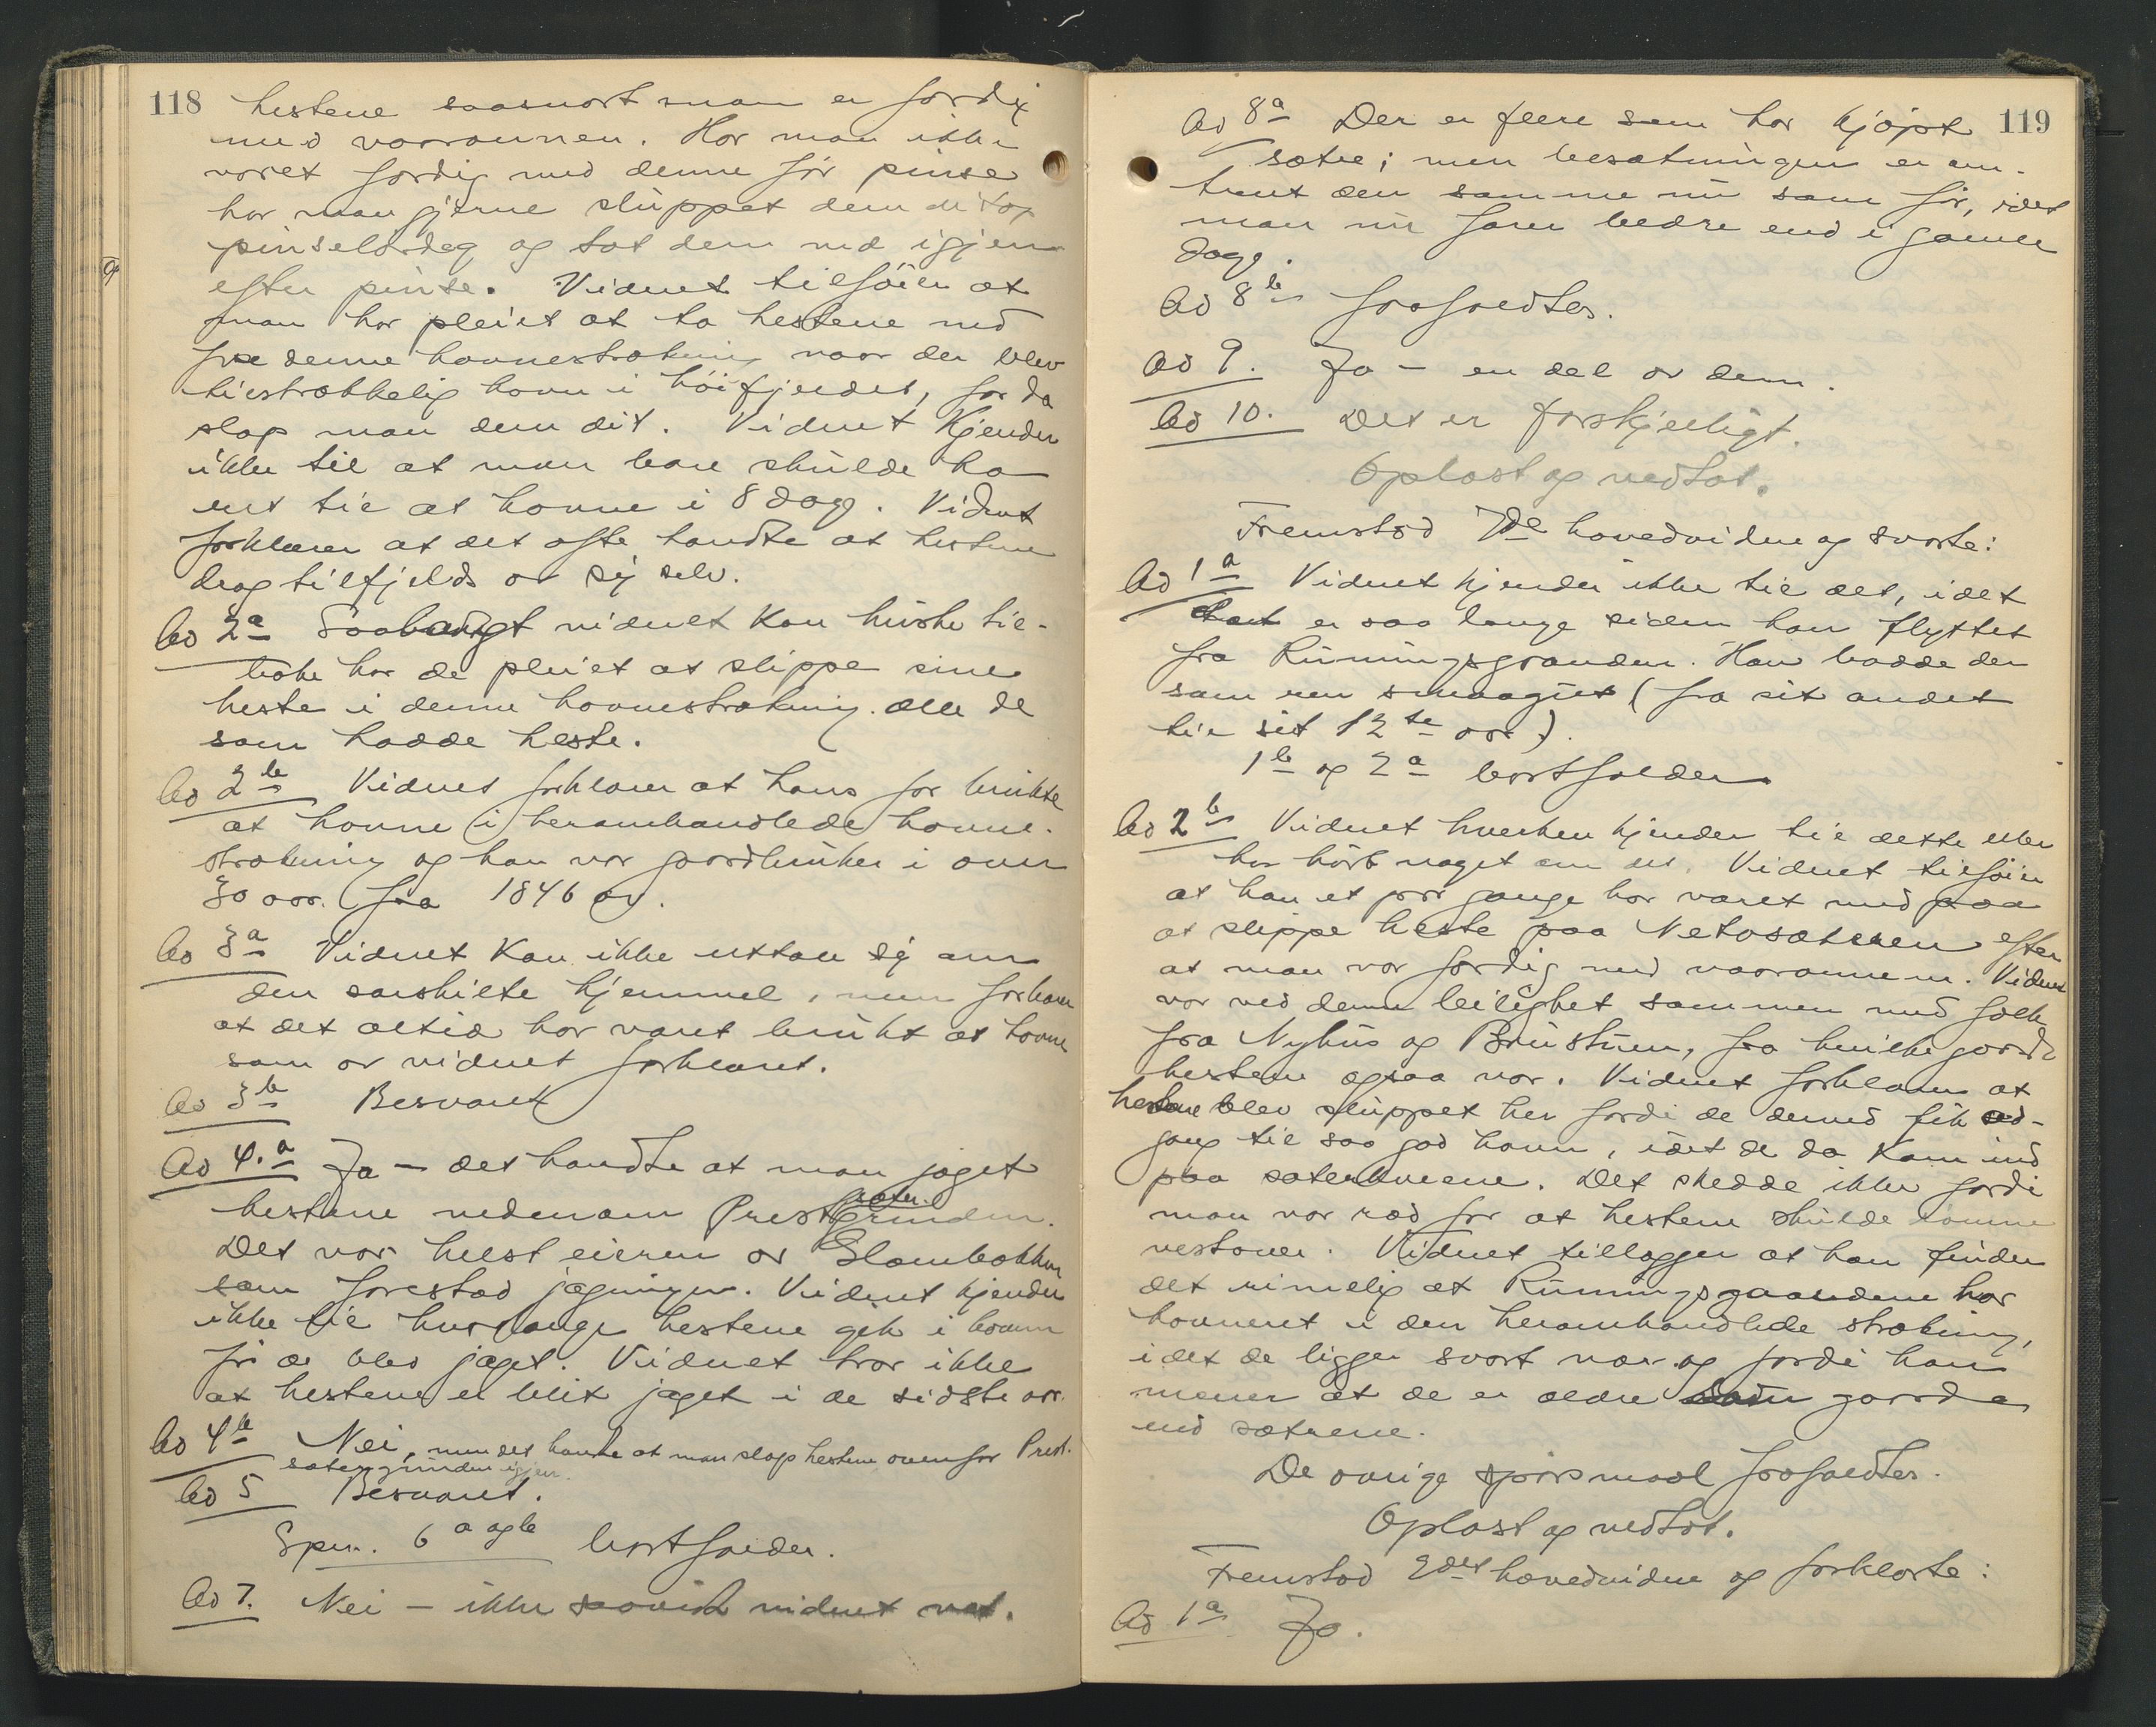 118
hestene saasnart man er færdig
med vaaraannen. Har man ikke
været færdig med denne før pinse
har man gjerne sluppet dem ditop
pinselørdag og tat dem ned igjen
efter pinse. Vidnet tilføier at
man har pleiet at ta hestene ned
fra denne havnestrækning naar der blev
tilstrækkelig havn i høifjeldet, for da
slap man dem dit. Vidnet kjender
ikke til at man bare skulde ha
ret til at havne i 8 dage. Vidnet
forklarer at det ofte hændte at hestene
drog tilfjelds av sig selv.
Ad 2a Saalangt vidnet kan huske til-
bake har de pleiet at slippe sine
heste i denne havnestrækning. Alle de
som hadde heste.
Ad 2b Vidnet forklarer at hans far brukte
at havne i heromhandlede havne-
strækning og han var gaardbruker i over
30 aar. (fra 1846 av.
Ad 3a Vidnet kan ikke uttale sig om
den særskilte hjemmel, men forklarer
at det altid har været brukt at havne
som av vidnet forklaret.
Ad 3b Besvaret
Ad 4.a Ja – det hændte at man jaget
hestene nedenom Prestsætergrinden.
Det var helst eieren av Slombakken
som forestod jagningen. Vidnet kjender
ikke til hvorlænge hestene gik i havnen
før de blev jaget. Vidnet tror ikke
at hestene er blit jaget i de sidste aar.
Ad 4b Nei, men det hændte at man slap hestene ovenfor Prest-
sætergrinden igjen.
Ad 5 Besvaret.
Spm. 6 a og b bortfalder.
Ad 7. Nei – ikke saavidt vidnet vet.
119
Ad 8a Der er flere som har kjøpt
sætre; men besætningen er om-
trent den samme nu som før, idet
man nu forer bedre end i gamle
dage.
Ad 8b frafaldtes.
Ad 9. Ja – en del av dem.
Ad 10. Det er forskjelligt.
Oplæst og vedtat.
Fremstod 7de hovedvidne og svarte:
Ad 1a Vidnet kjender ikke til det, idet
det er saa længe siden han flyttet
fra Runningsgranden. Han hadde der
som ren smaagut (fra sit andet
til sit 12te aar).
1b og 2a bortfalder
Ad 2b Vidnet hverken kjender til dette eller
har hørt noget om det. Vidnet tilføier
at han et par gange har været med paa
at slippe heste paa Netosæteren efter
at man var færdig med vaaraannen. Vidnet
var ved denne leilighet sammen med folk
fra Nyhus og Brustuen, fra hvilke gaarde
hestene ogsaa var. Vidnet forklarer at
hestene blev sluppet her fordi de derved fik ad-
gang til saa god havn, idet de da kom ind
paa sæterkveene. Det skedde ikke fordi
man var ræd for at hestene skulde rømme
vestover. Vidnet tillægger at han finder
det rimelig at Runningsgaardene har
havneret i den heromhandlede strækning,
idet de ligger svært nær og fordi han
mener at de er ældre som gaarde
end sætrene.
De øvrige spørsmaal frafaldtes.
Oplæst og vedtat.
Fremstod 2det hovedvidne og forklarte:
Ad 1a Ja.